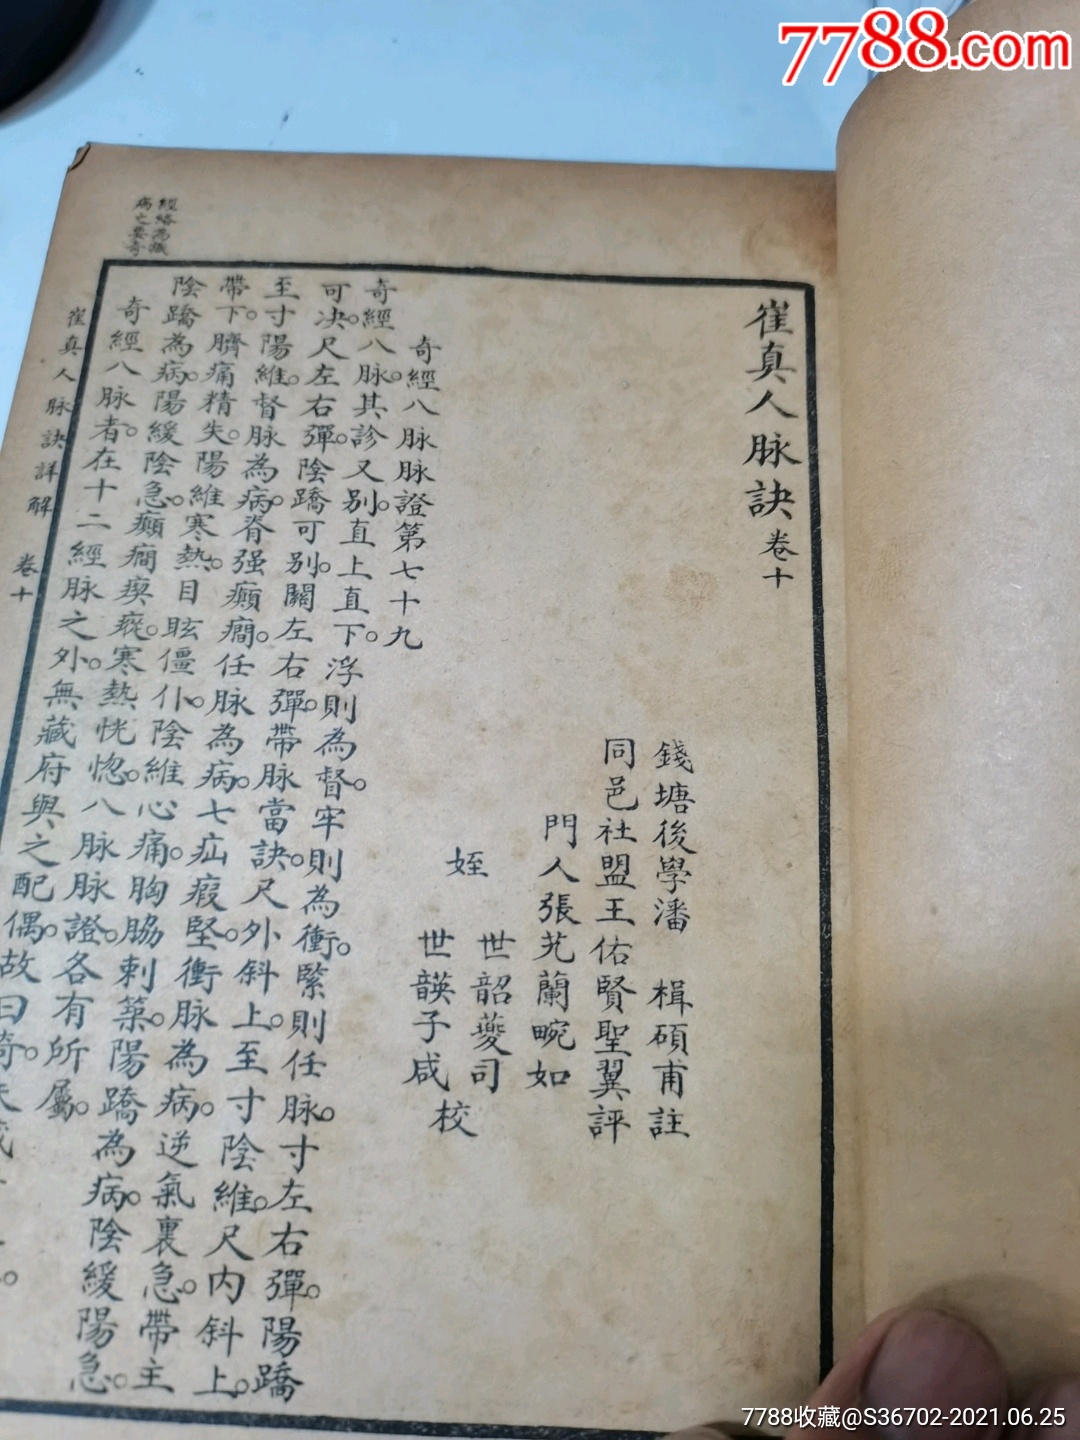 7788.com
崔真人脉訣卷十
錢塘後學潘 楫碩甫註
同邑社盟王佑賢聖翼評
門人張芄蘭畹如
姪
世韶夔司
世韺子咸
校
奇經八脉脉證第七十九
奇經八脉。其診又别。直上直下。浮則為督。牢則為衝。緊則任脉。寸左右彈。陽蹻
可决。尺左右彈。陰蹻可别。關左右彈。帶脉當訣。尺外斜上。至寸陰維。尺内斜上。
至寸陽維。督脉為病。脊强癲癇。任脉為病。七疝瘕堅。衝脉為病。逆氣裏急。帶主
帶下。臍痛精失。陽維寒熱。目眩僵仆。陰維心痛。胸脇刺築。陽蹻為病。陰緩陽急。
陰蹻為病。陽緩陰急。癲癇瘈瘲。寒熱恍惚。八脉脉證。各有所屬。
奇經八脉者。在十二經脉之外。無藏府與之配偶。故曰奇。
經絡為
病之要奇
崔真人脉訣詳解 卷十
7788收藏@S36702-2021.06.25